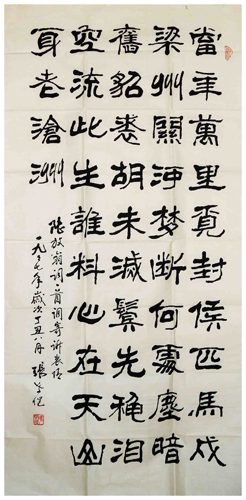 當年萬里覓封侯匹馬戍
梁州關河梦斷何處塵暗
舊貂裘胡未滅鬢先穐泪
空流此生誰料心在天山
身老滄洲
陸放翁词一首调寄诉衷情
一九九七年歲次丁丑八月 張